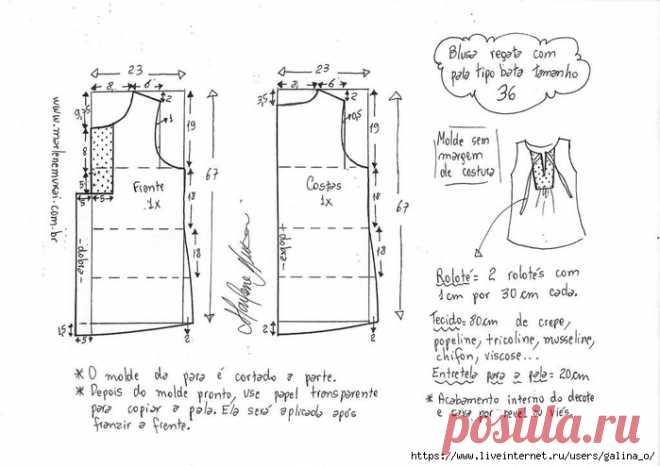 Blusa regata com
pala tipo bata tamanho
36
Molde sem
margem
de costura
Rolotê = 2 rolotês com
1cm por 30cm cada.
Tecido = 80cm de crepe,
popeline, tricoline, musseline,
chifon, viscose...
Entretela para a pala = 20cm
* Acabamento interno do decote
e cava por revel ou viés.
www.marlenemukai.com.br
23
8
6
2
9,75
1
19
8
5
5
5
Frente
1x
67
18
- dobra -
18
1,5
5
2
23
8
6
2
3,5
0,5
19
Costas
1x
67
18
- dobra -
18
2
2
Marlene Mukai
* O molde da para é cortado a parte.
* Depois do molde pronto, use papel transparente
para copiar a pala. Ela será aplicada após
franzir a frente.
postila.ru
https://www.liveinternet.ru/users/galina_o/